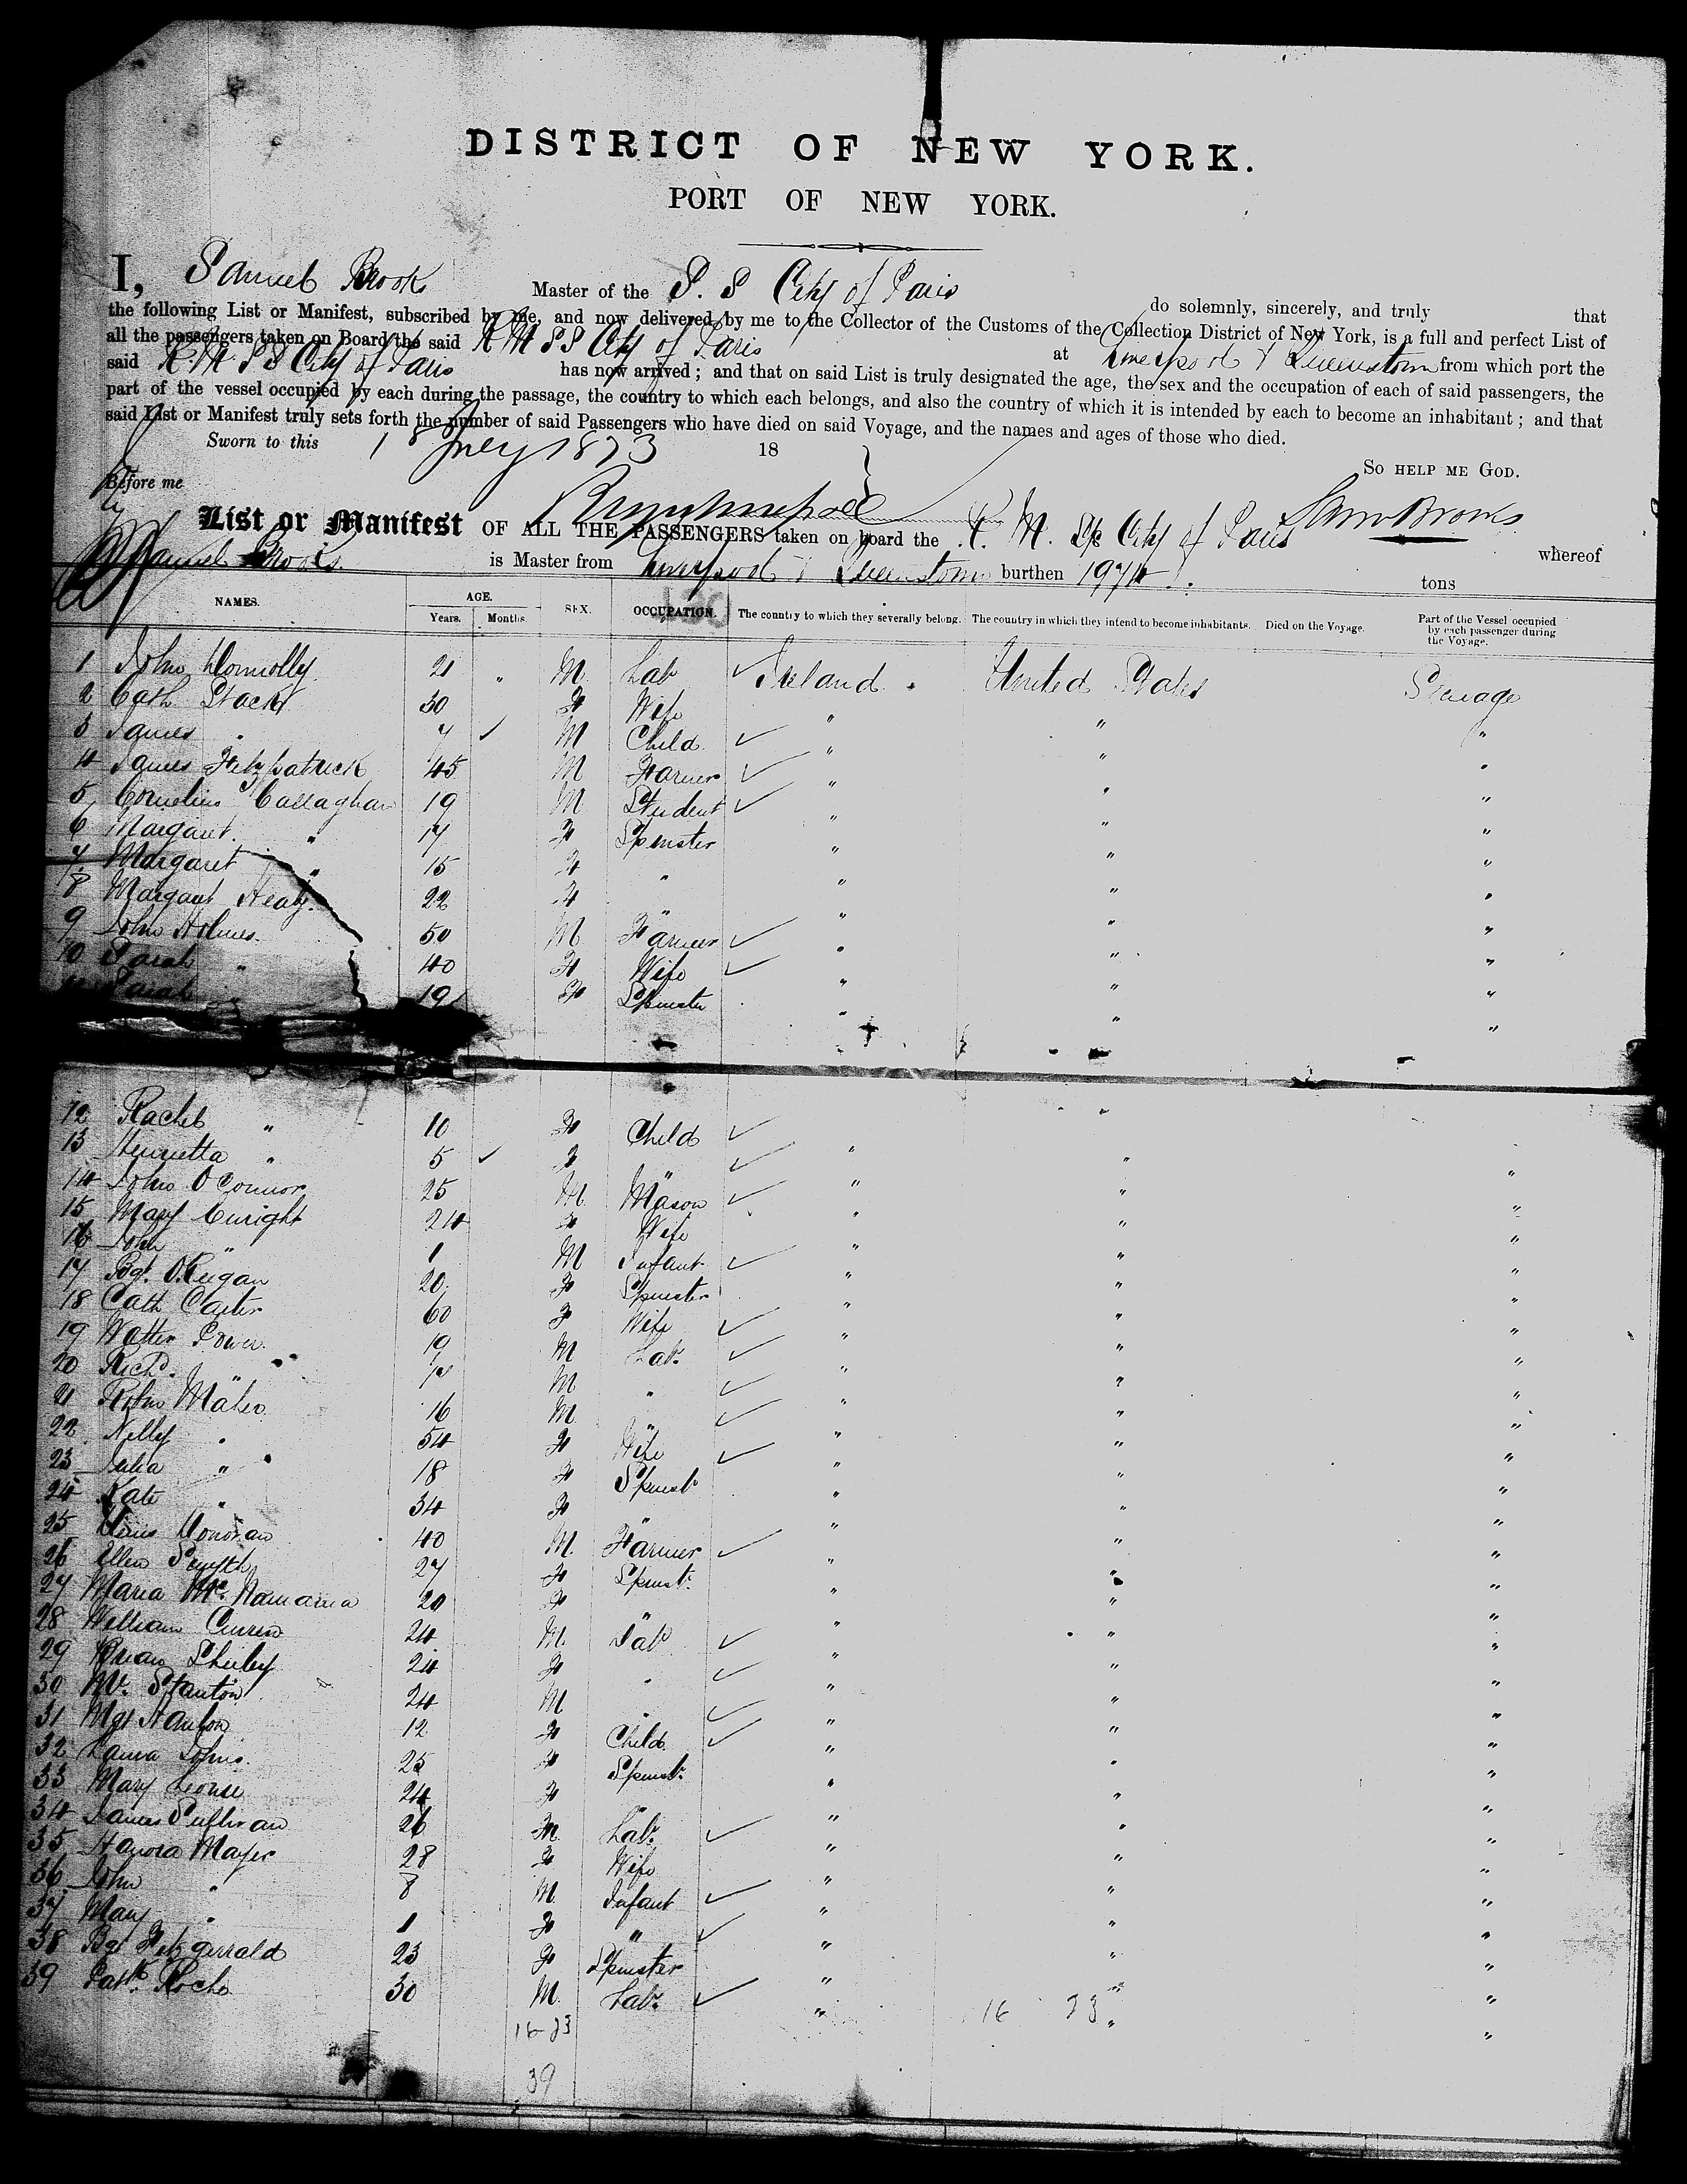 DISTRICT OF NEW YORK.
PORT OF NEW YORK.
I, Samuel Brooks Master of the S. S City of Paris do solemnly, sincerely, and truly that
the following List or Manifest, subscribed by me, and now delivered by me to the Collector of the Customs of the Collection District of New York, is a full and perfect List of
all the passengers taken on Board the said R M S S City of Paris at Liverpool & Queenstown from which port the
said R. M. S S City of Paris has now arrived; and that on said List is truly designated the age, the sex and the occupation of each of said passengers, the
part of the vessel occupied by each during the passage, the country to which each belongs, and also the country of which it is intended by each to become an inhabitant; and that
said List or Manifest truly sets forth the number of said Passengers who have died on said Voyage, and the names and ages of those who died.
Sworn to this 18 July 1873 18
So HELP ME GOD.
Before me Saml Brooks
List or Manifest OF ALL THE PASSENGERS taken on board the R. M. City of Paris whereof
Samuel Brooks is Master from Liverpool & Queenstown burthen tons
NAMES. AGE. Years. Months. SEX. OCCUPATION. The country to which they severally belong. The country in which they intend to become inhabitants. Died on the Voyage. Part of the Vessel occupied by each passenger during the Voyage.
1 John Connolly 21 " M Lab Ireland United States Steerage
2 Cath Stack 30 F Wife " " "
3 James " 7 M Child " " "
4 James Fitzpatrick 45 M Farmer " " "
5 Cornelius Callaghan 19 M Student " " "
6 Margaret " 17 F Spinster " " "
7 Margaret " 15 F " " " "
8 Margaret Healy 22 F " " " "
9 John Holmes 50 M Farmer " " "
10 Sarah " 40 F Wife " " "
11 Sarah " 19 F Spinster " " "
12 Rachel " 10 F Child " " "
13 Henrietta " 5 F " " " "
14 John O'Connor 25 M Mason " " "
15 Mary Enright 24 F Wife " " "
16 John " 1 M Infant " " "
17 Bgt. O'Regan 20 F Spinster " " "
18 Cath Carter 60 F Wife " " "
19 Walter Power 19 M Labr " " "
20 Richd. " M " " " "
21 John Maher 16 M " " " "
22 Nelly " 54 F Wife " " "
23 Julia " 18 F Spinstr " " "
24 Kate " 34 F " " " "
25 Denis Donovan 40 M Farmer " " "
26 Ellen Smyth 27 F Spinstr " " "
27 Maria McNamara 20 F " " " "
28 William Curren 24 M Labr " " "
29 24 F " " " "
30 Stanton 24 M " " " "
31 Mgt Hanlon 12 F Child " " "
32 Laura Johns 25 F Spinstr " " "
33 Mary 24 F " " " "
34 James Sullivan 26 M Labr " " "
35 Hanora Mayer 28 F Wife " " "
36 John " 8 M Infant " " "
37 Mary " 1 F " " " "
38 Bgt Fitzgerrald 23 F Spinster " " "
39 Patk. Roche 30 M. Labr " " "
16-23 16 23
39